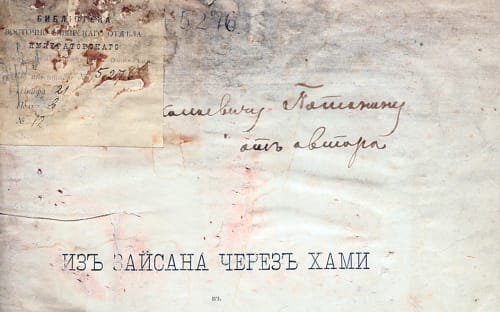 БИБЛІОТЕКА
ВОСТОЧНО-СИБИРСКАГО ОТДѢЛА
ИМПЕРАТОРСКАГО
5276
5276
Шкафа 21
№ 72
Потанину
отъ автора
ИЗЪ ЗАЙСАНА ЧЕРЕЗЪ ХАМИ
ВЪ